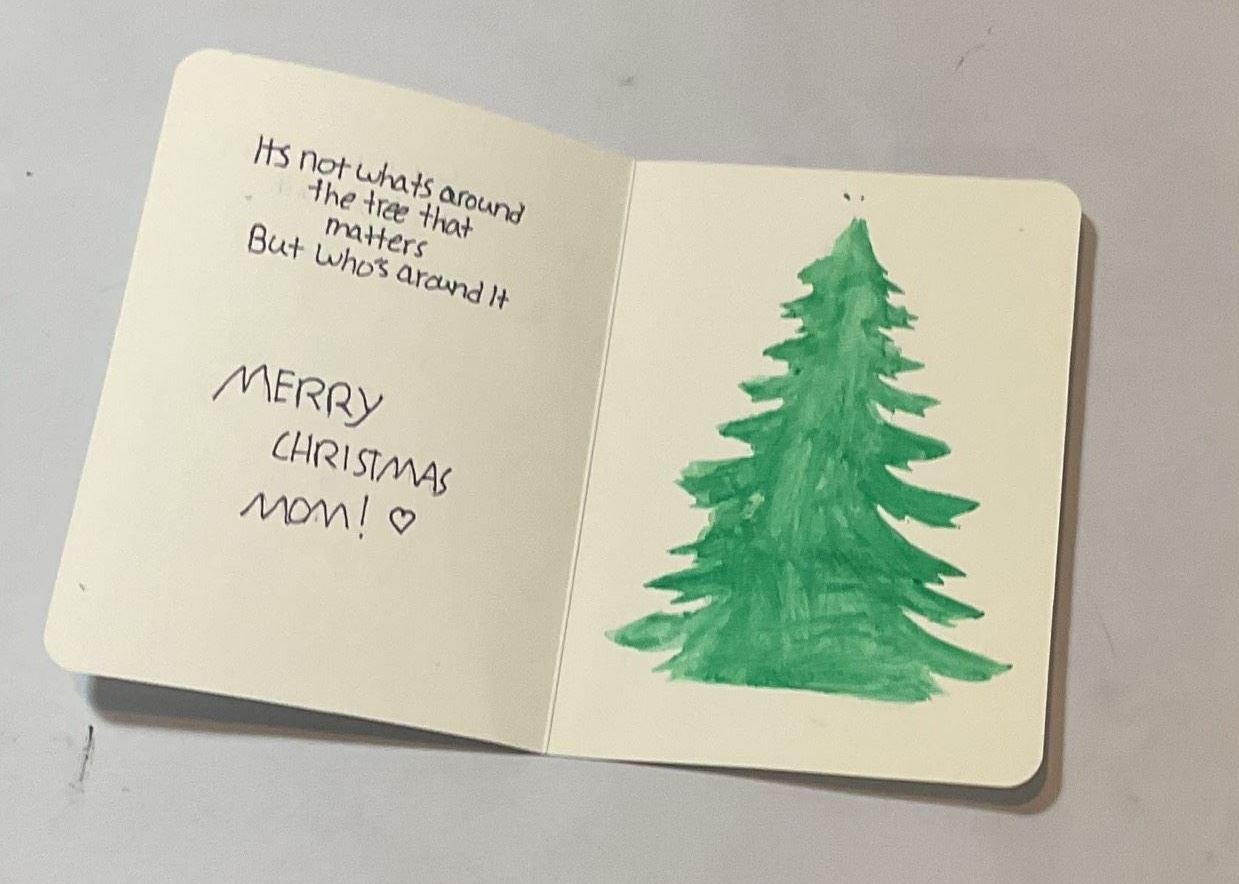 Its not whats around
the tree that
matters
But who's around It
MERRY
CHRISTMAS
MOM! ♡